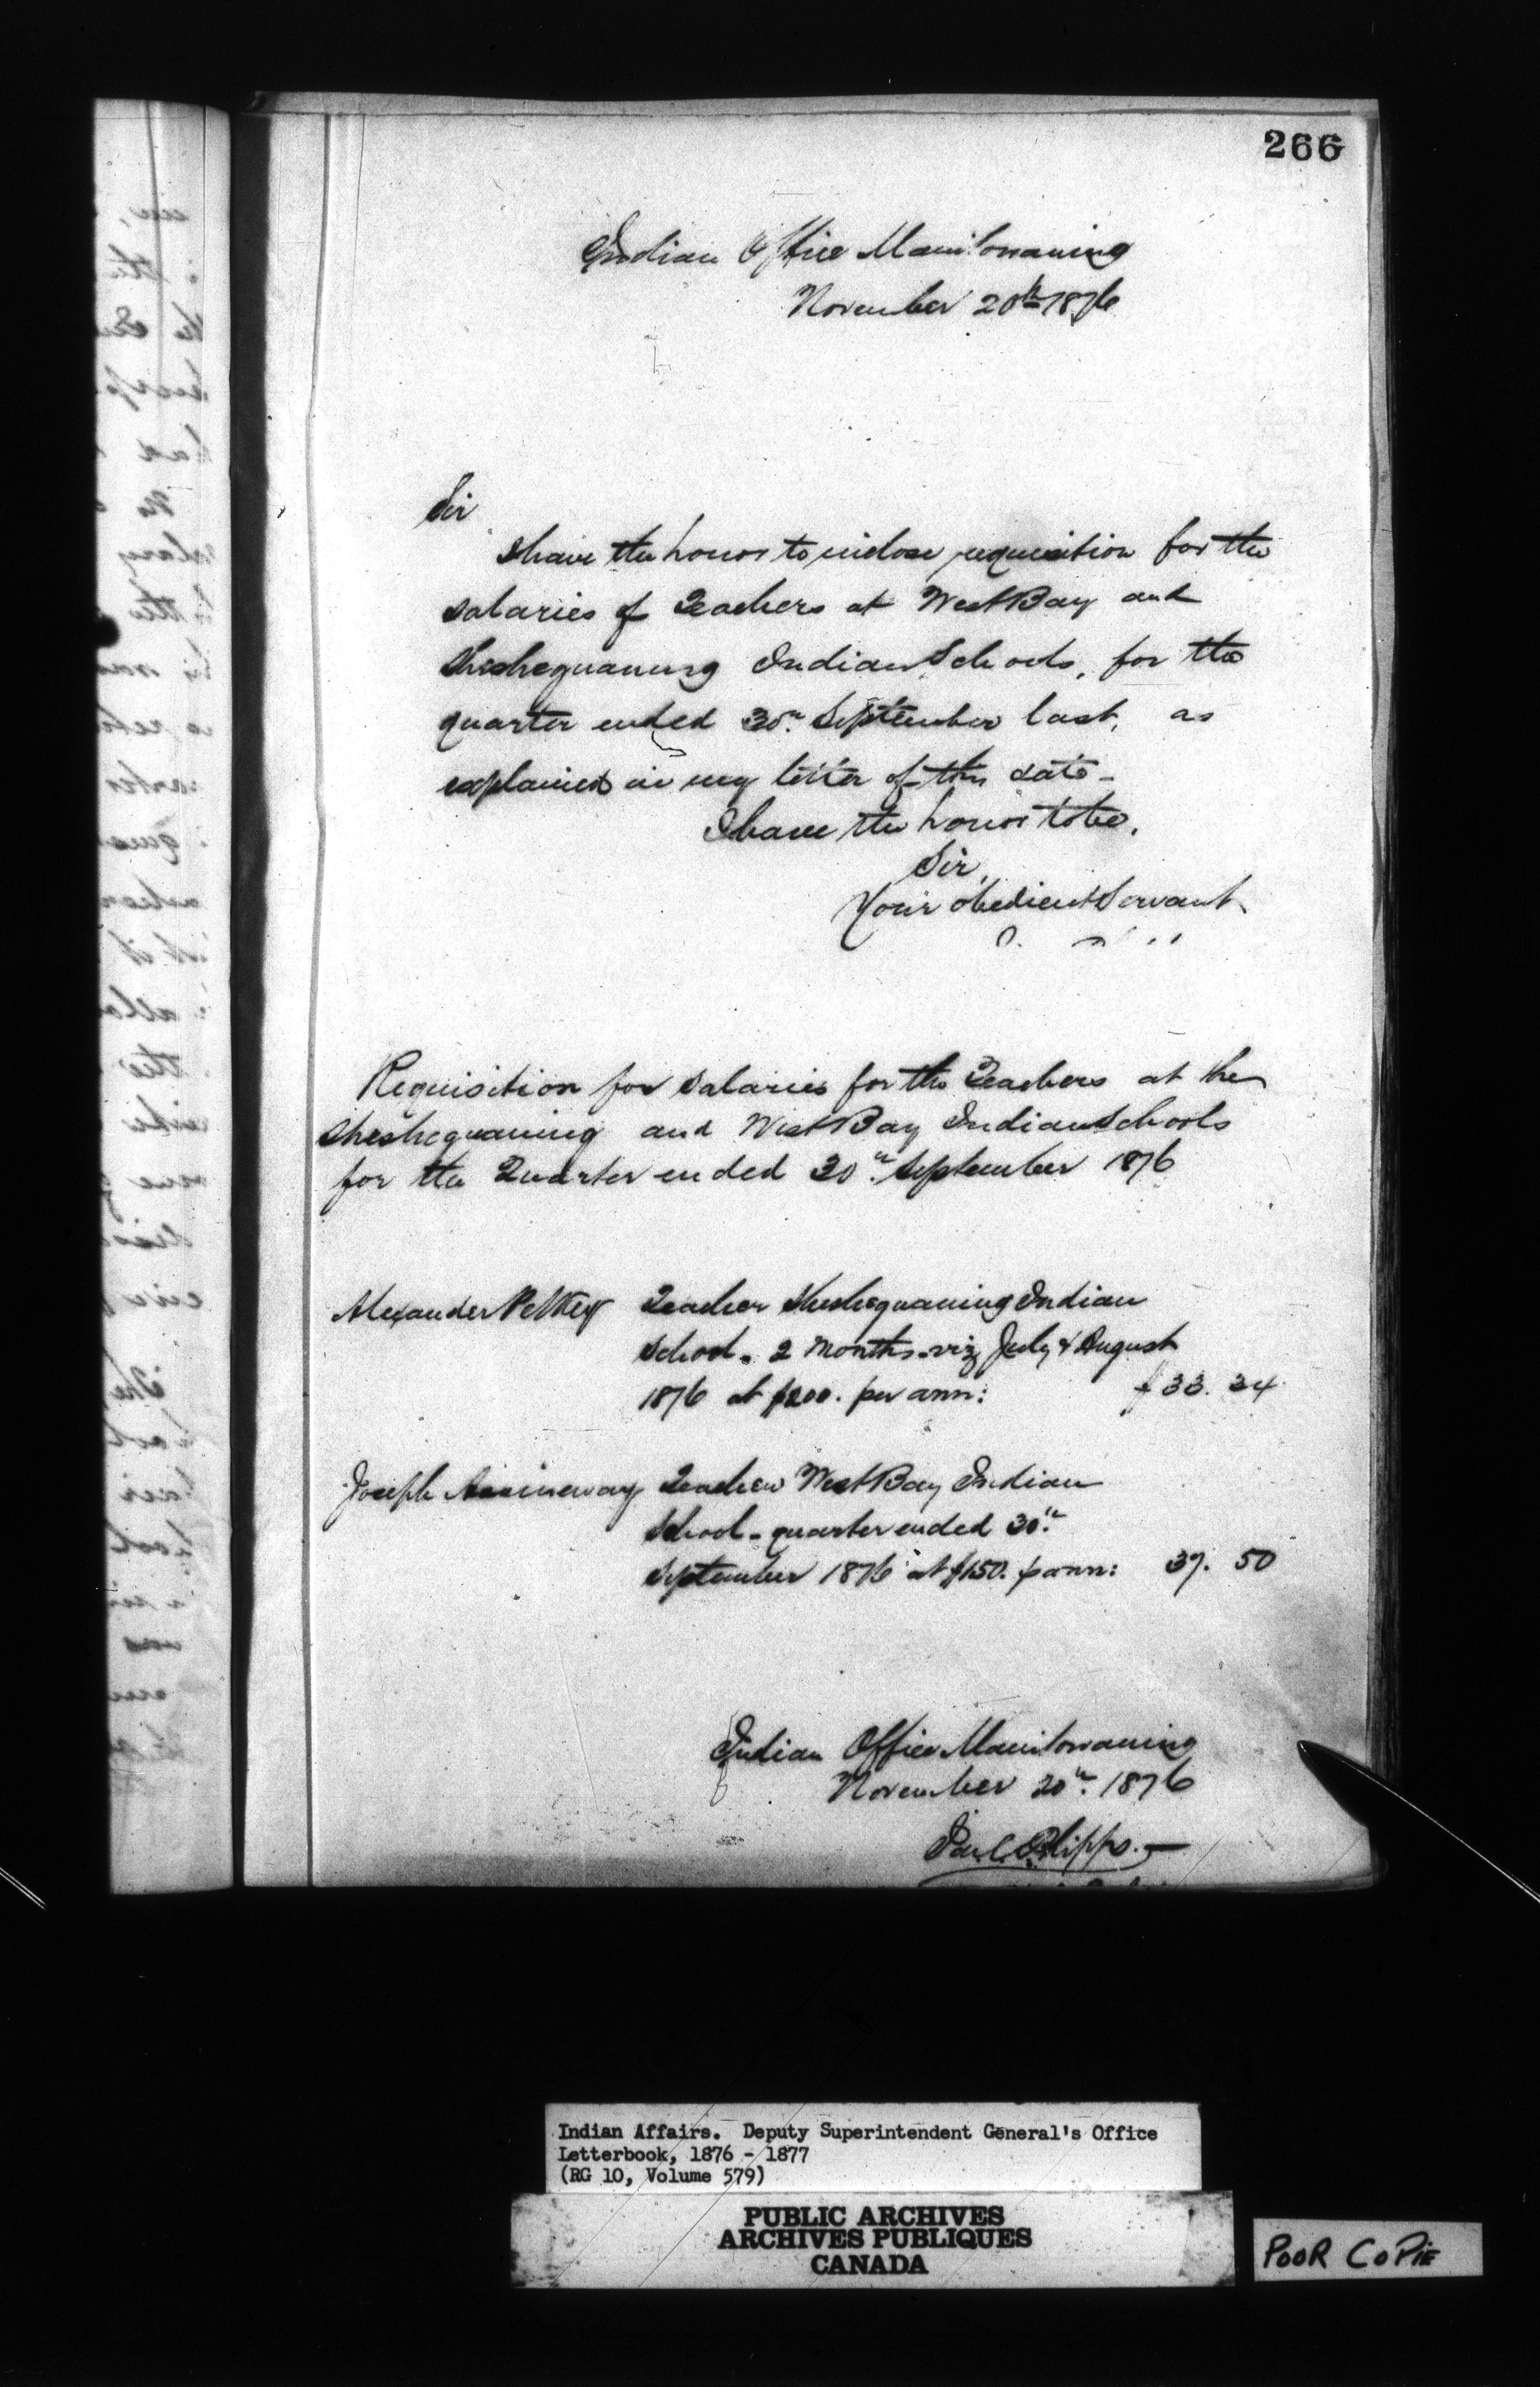 266
Indian Office Manitowaning
November 20th 1876
Sir
I have the honor to inclose requisition for the
salaries of Teachers at West Bay and
Sheshegwaning Indian Schools, for the
quarter ended 30th September last, as
explained in my letter of this date -
I have the honor to be,
Sir,
Your obedient Servant
Requisition for salaries for the Teachers at the
Sheshegwaning and West Bay Indian Schools
for the Quarter ended 30th September 1876
Alexander Pelkey Teacher Sheshegwaning Indian
School - 2 months - viz July & August
1876 at $200. per ann: $33. 34
Joseph Teacher West Bay Indian
School - quarter ended 30th
September 1876 at $150. p ann: 37. 50
Indian Office Manitowaning
November 20th 1876
Phipps. -
Indian Affairs. Deputy Superintendent General's Office
Letterbook, 1876 - 1877
(RG 10, Volume 579)
PUBLIC ARCHIVES
ARCHIVES PUBLIQUES
CANADA
POOR COPIE